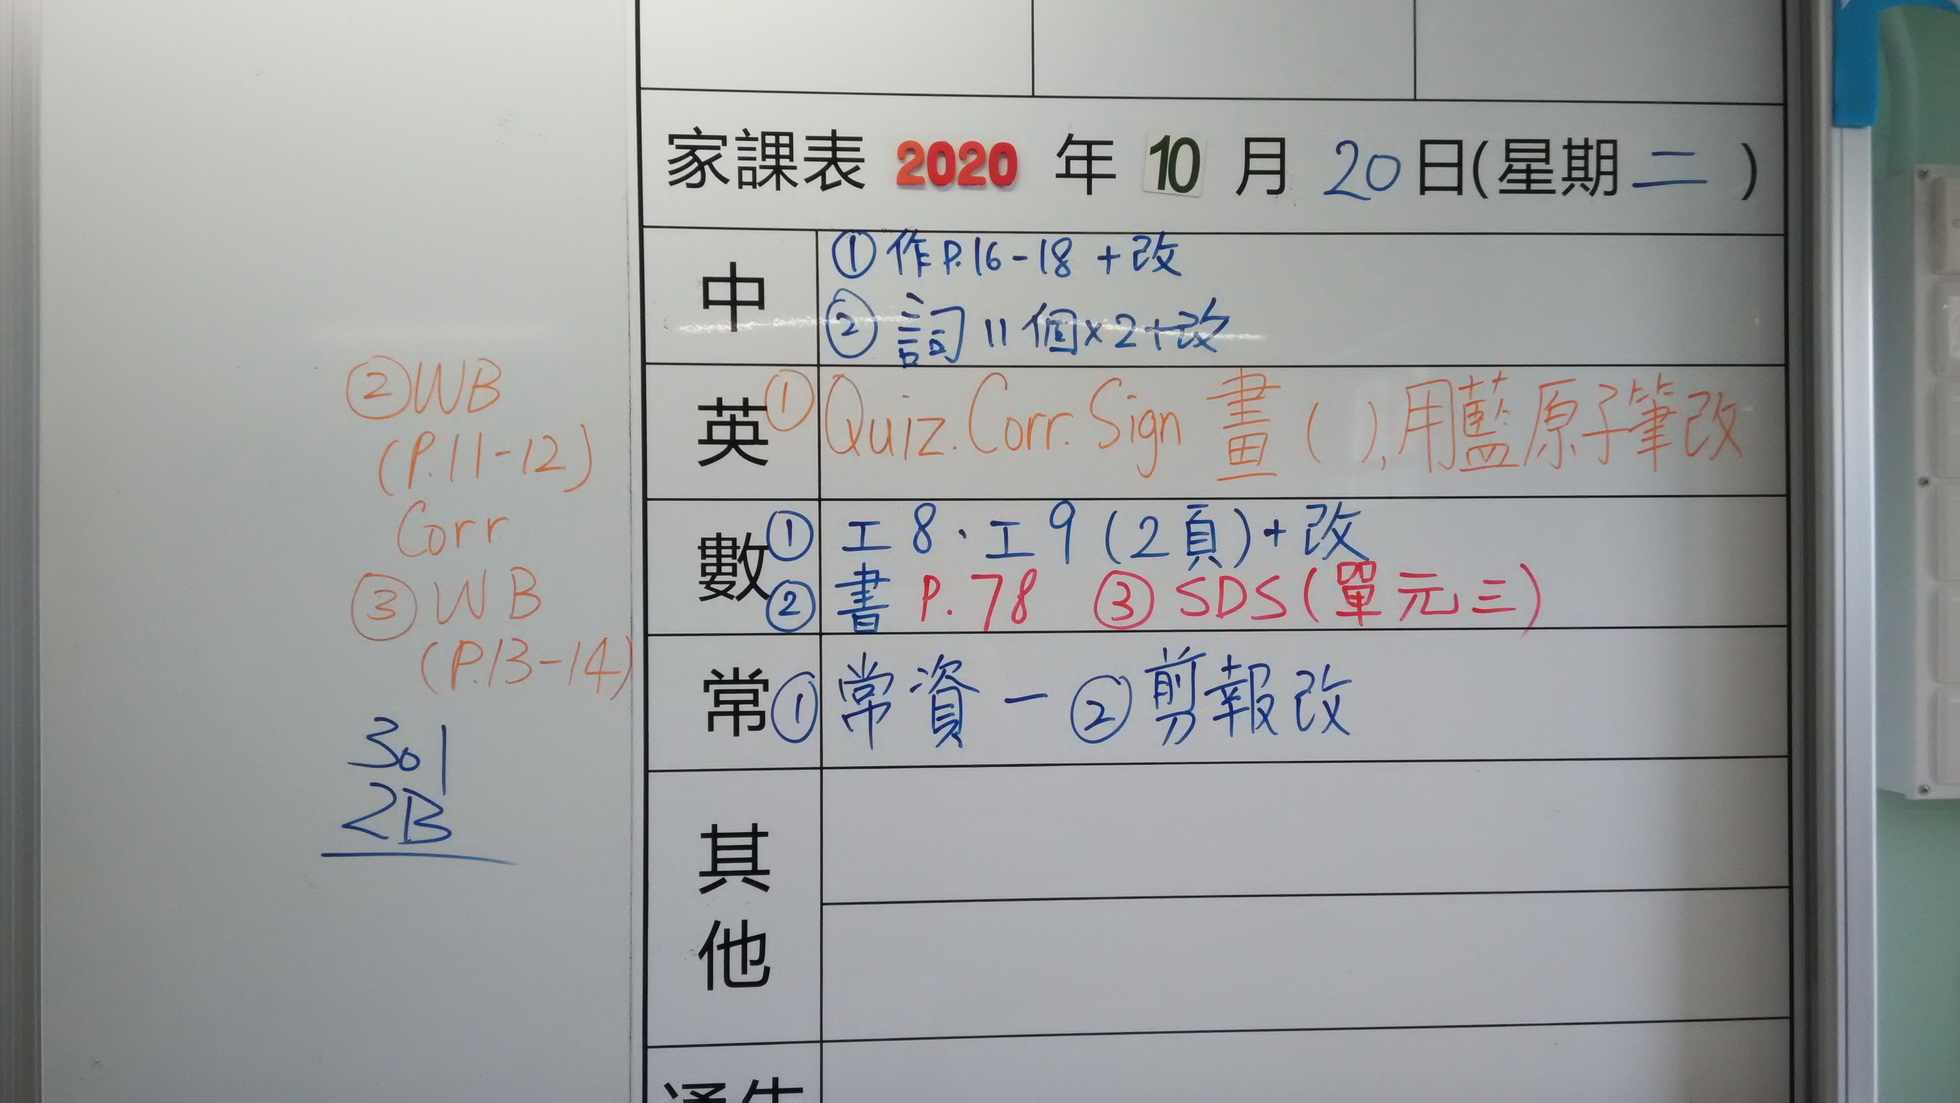 家課表 2020 年 10 月 20 日(星期二)
中
①作P.16-18 +改
②詞11個×2+改
英
①Quiz.Corr.Sign 畫( ),用藍原子筆改
②WB
(P.11-12)
Corr
③WB
(P.13-14)
數
①工8、工9(2頁)+改
②書P.78 ③SDS(單元三)
常
①常資一 ②剪報改
301
2B
其
他
通告